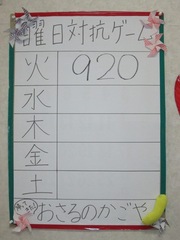 曜日対抗ゲーム
火 920
水
木
金
土
おさるのかごや